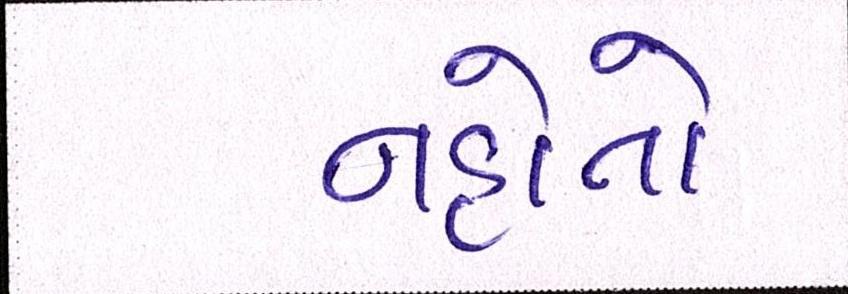 નહોતો